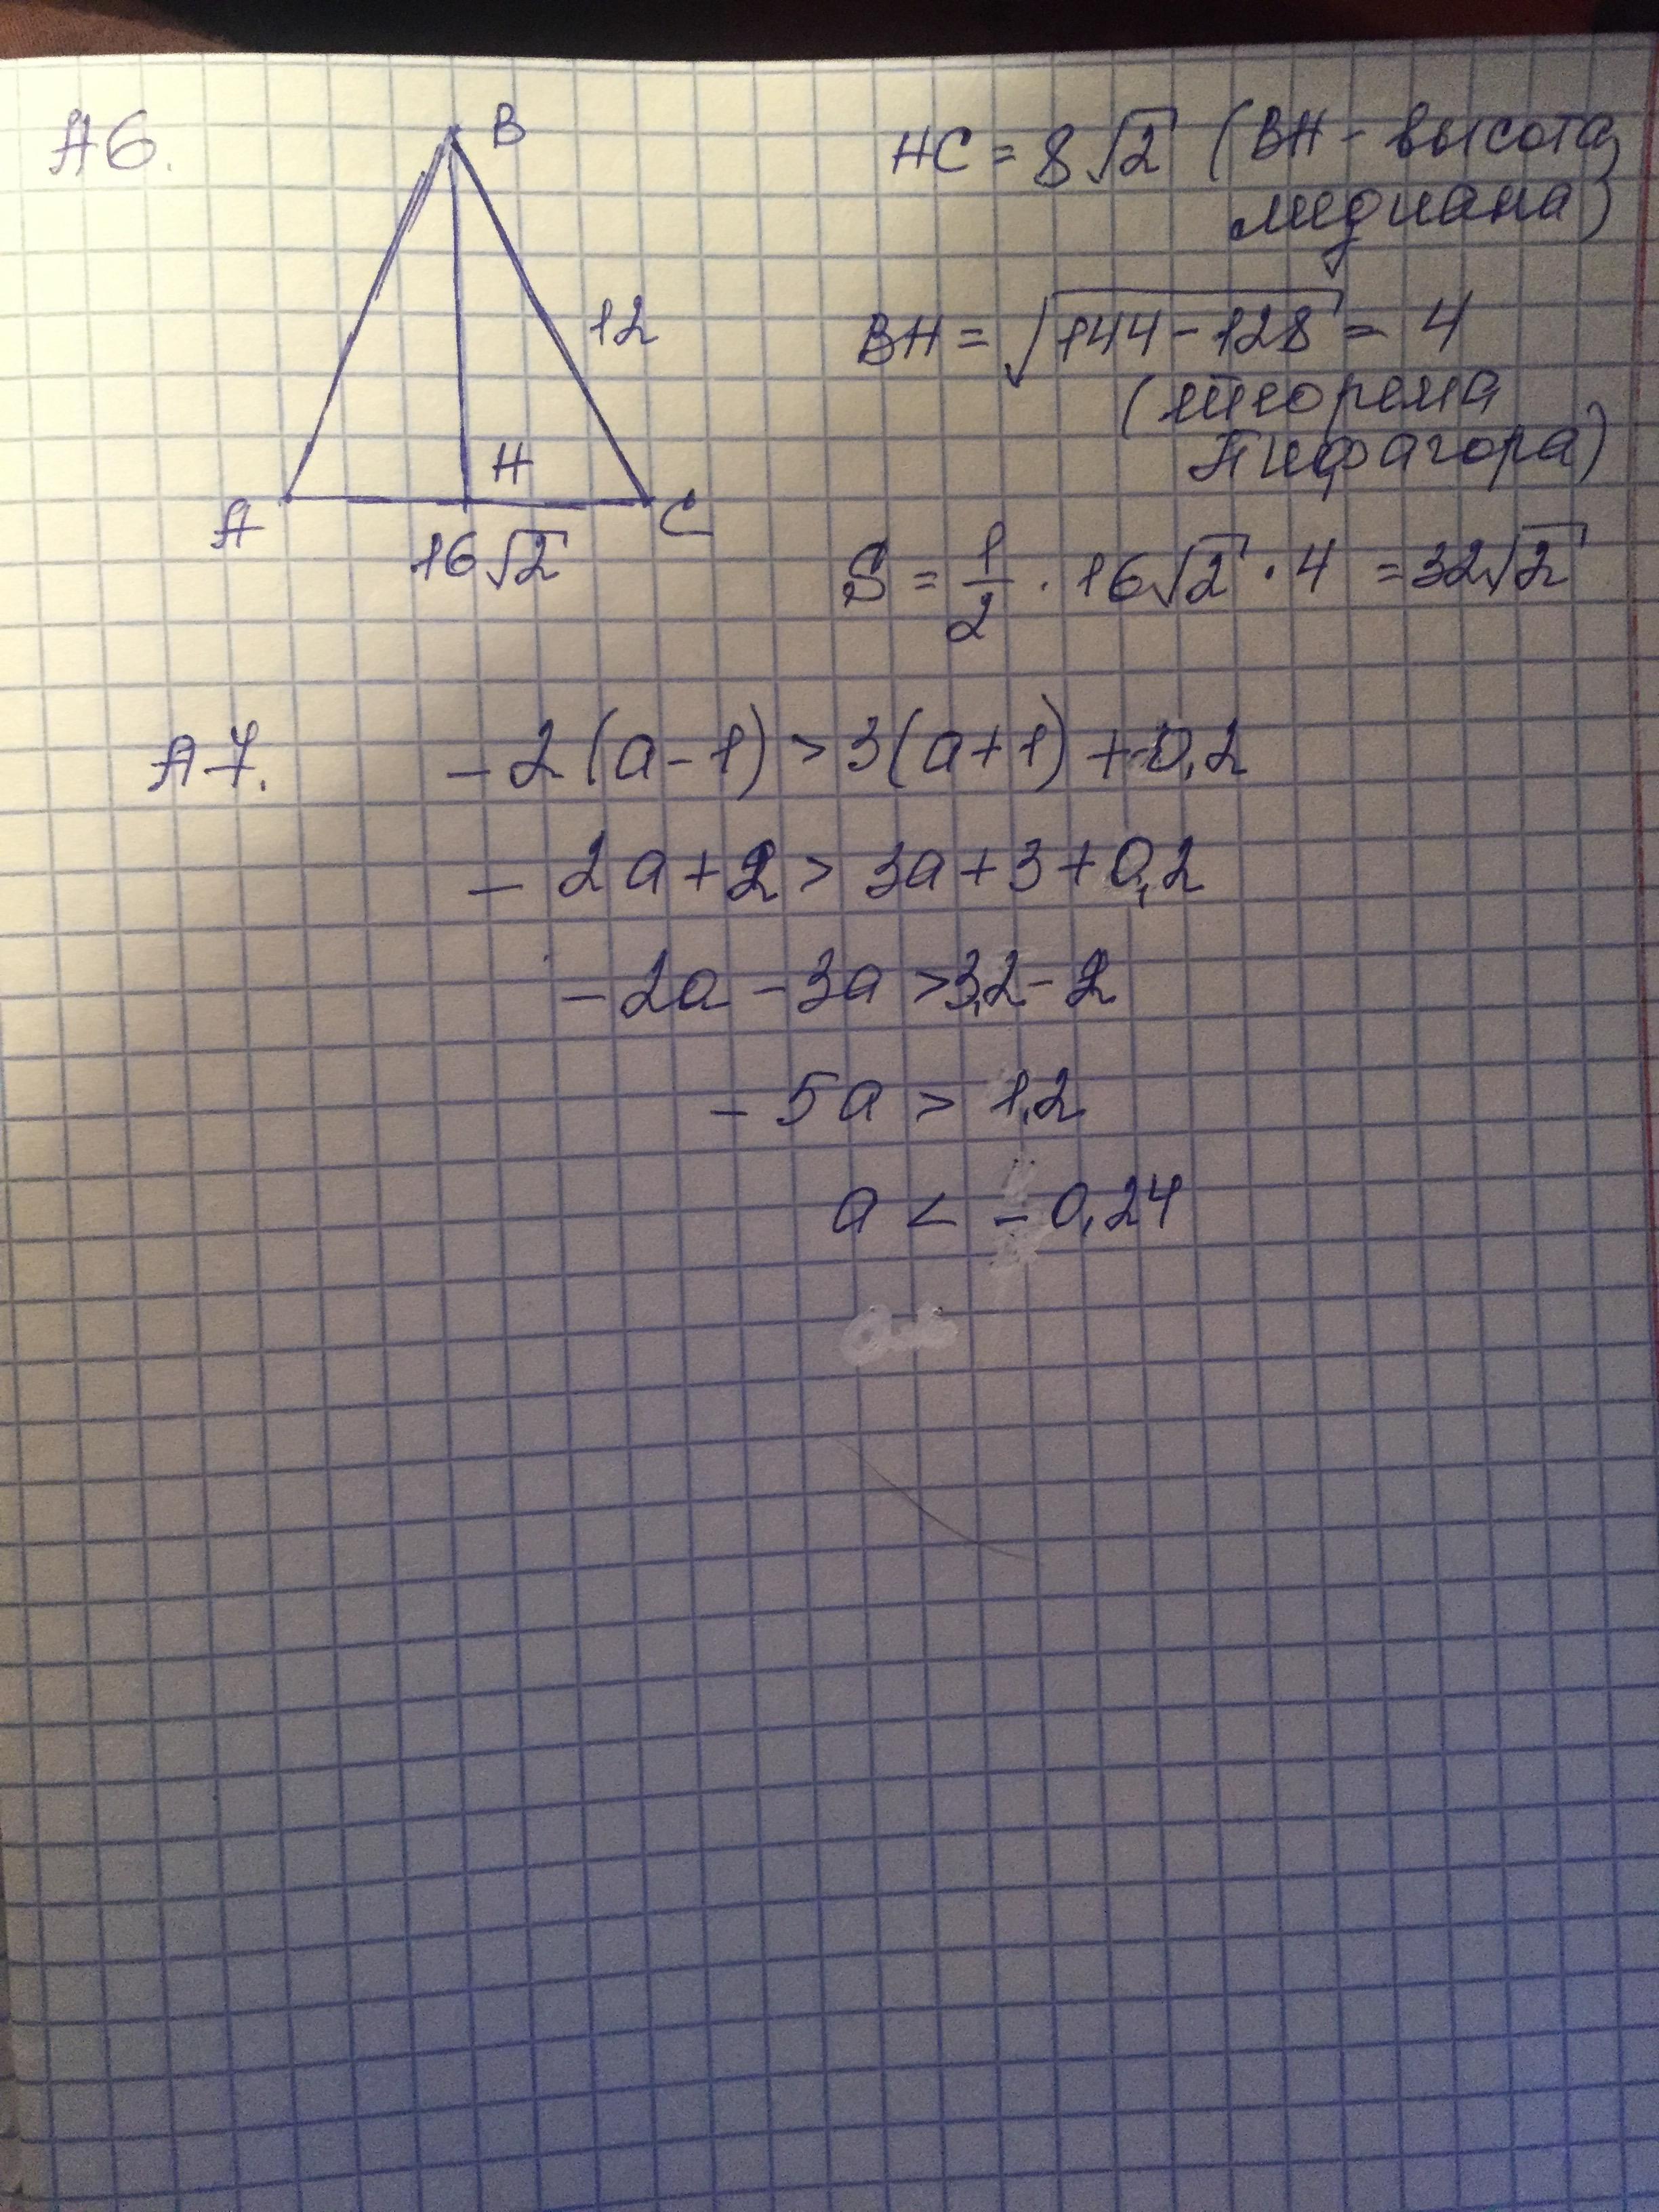 А6.
B
12
H
A
C
16√2
HC = 8√2 (BH - высота
медиана)
BH = √144-128 = 4
(теорема
Пифагора)
S = 1/2 · 16√2 · 4 = 32√2
А7.
-2(a-1) > 3(a+1) + 0,2
-2a+2 > 3a+3+0,2
-2a-3a > 3,2-2
-5a > 1,2
a < -0,24